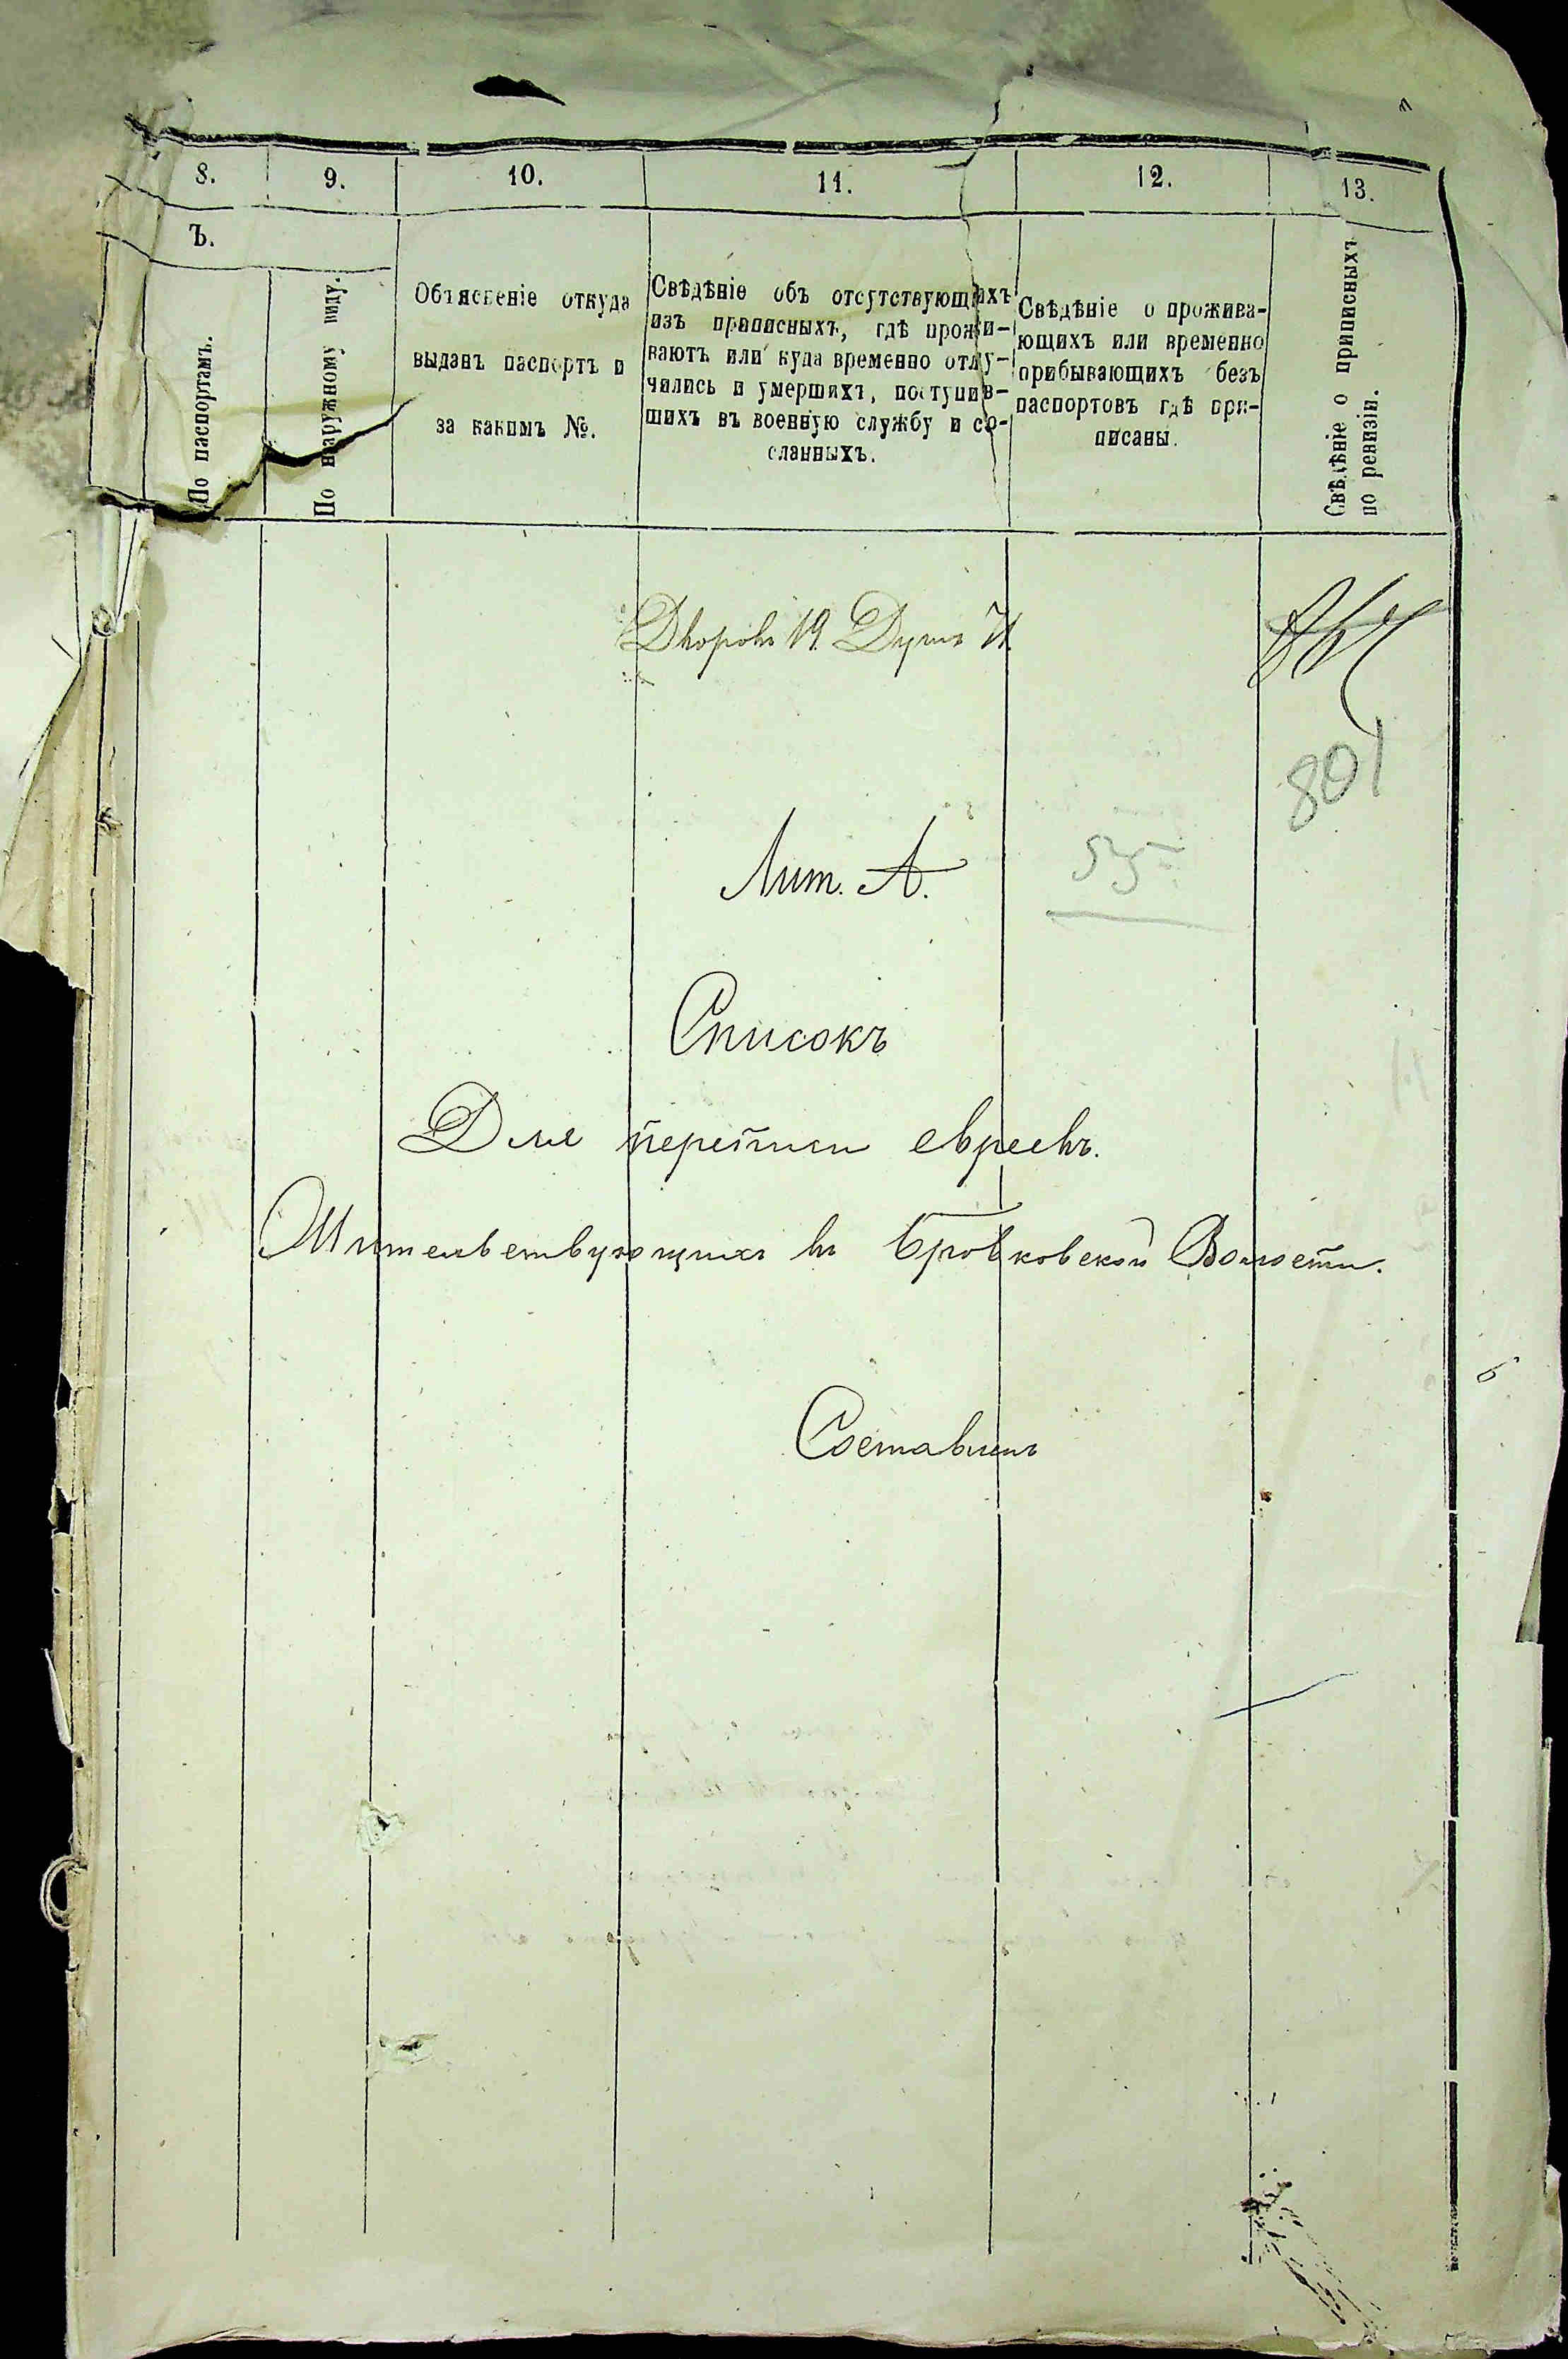 8. 9. 10. 11. 12. 13.
Ъ.
По паспортамъ.
По наружному виду.
Объясненіе откуда
выданъ паспортъ и
за какимъ №.
Свѣдѣніе объ отсутствующихъ
изъ приписныхъ, гдѣ прожи-
ваютъ или куда временно отлу-
чились и умершихъ, поступив-
шихъ въ военную службу и со-
сланныхъ.
Свѣдѣніе о прожива-
ющихъ или временно
прибывающихъ безъ
паспортовъ гдѣ при-
писаны.
Свѣдѣніе о приписныхъ
по ревизіи.
Дворовъ 19. Душъ 71.
801
Лит. А.
55
Списокъ
Для переписи евреевъ.
Жительствующихъ въ Бровковской Волости.
Составилъ